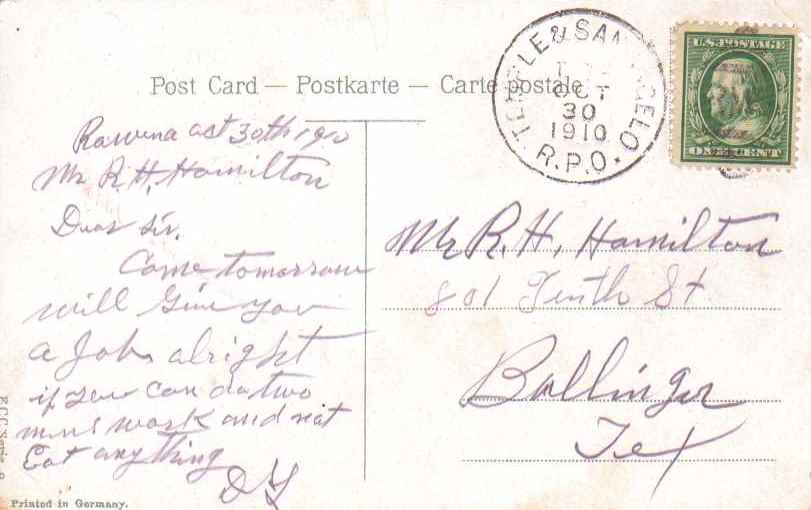 Post Card — Postkarte — Carte postale
TEMPLE & SAN ANGELO
OCT
30
1910
R.P.O.
U.S. POSTAGE
ONE CENT
Rowena oct 30th 1910
Mr R. H. Hamilton
Dear Sir.
Come tomorrow
will Give you
a Job alright
if you can do two
mens work and not
Eat anything
Mr R. H. Hamilton
801 Tenth St
Ballinger
Tex
Printed in Germany.